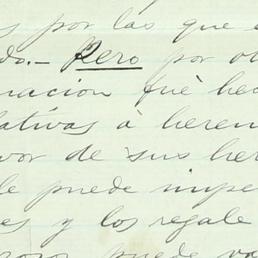 s por las que e
do.- Pero por ot
nacion fué hec
lativas à heren
vor de sus her
le puede impe
es y los regale
puede va